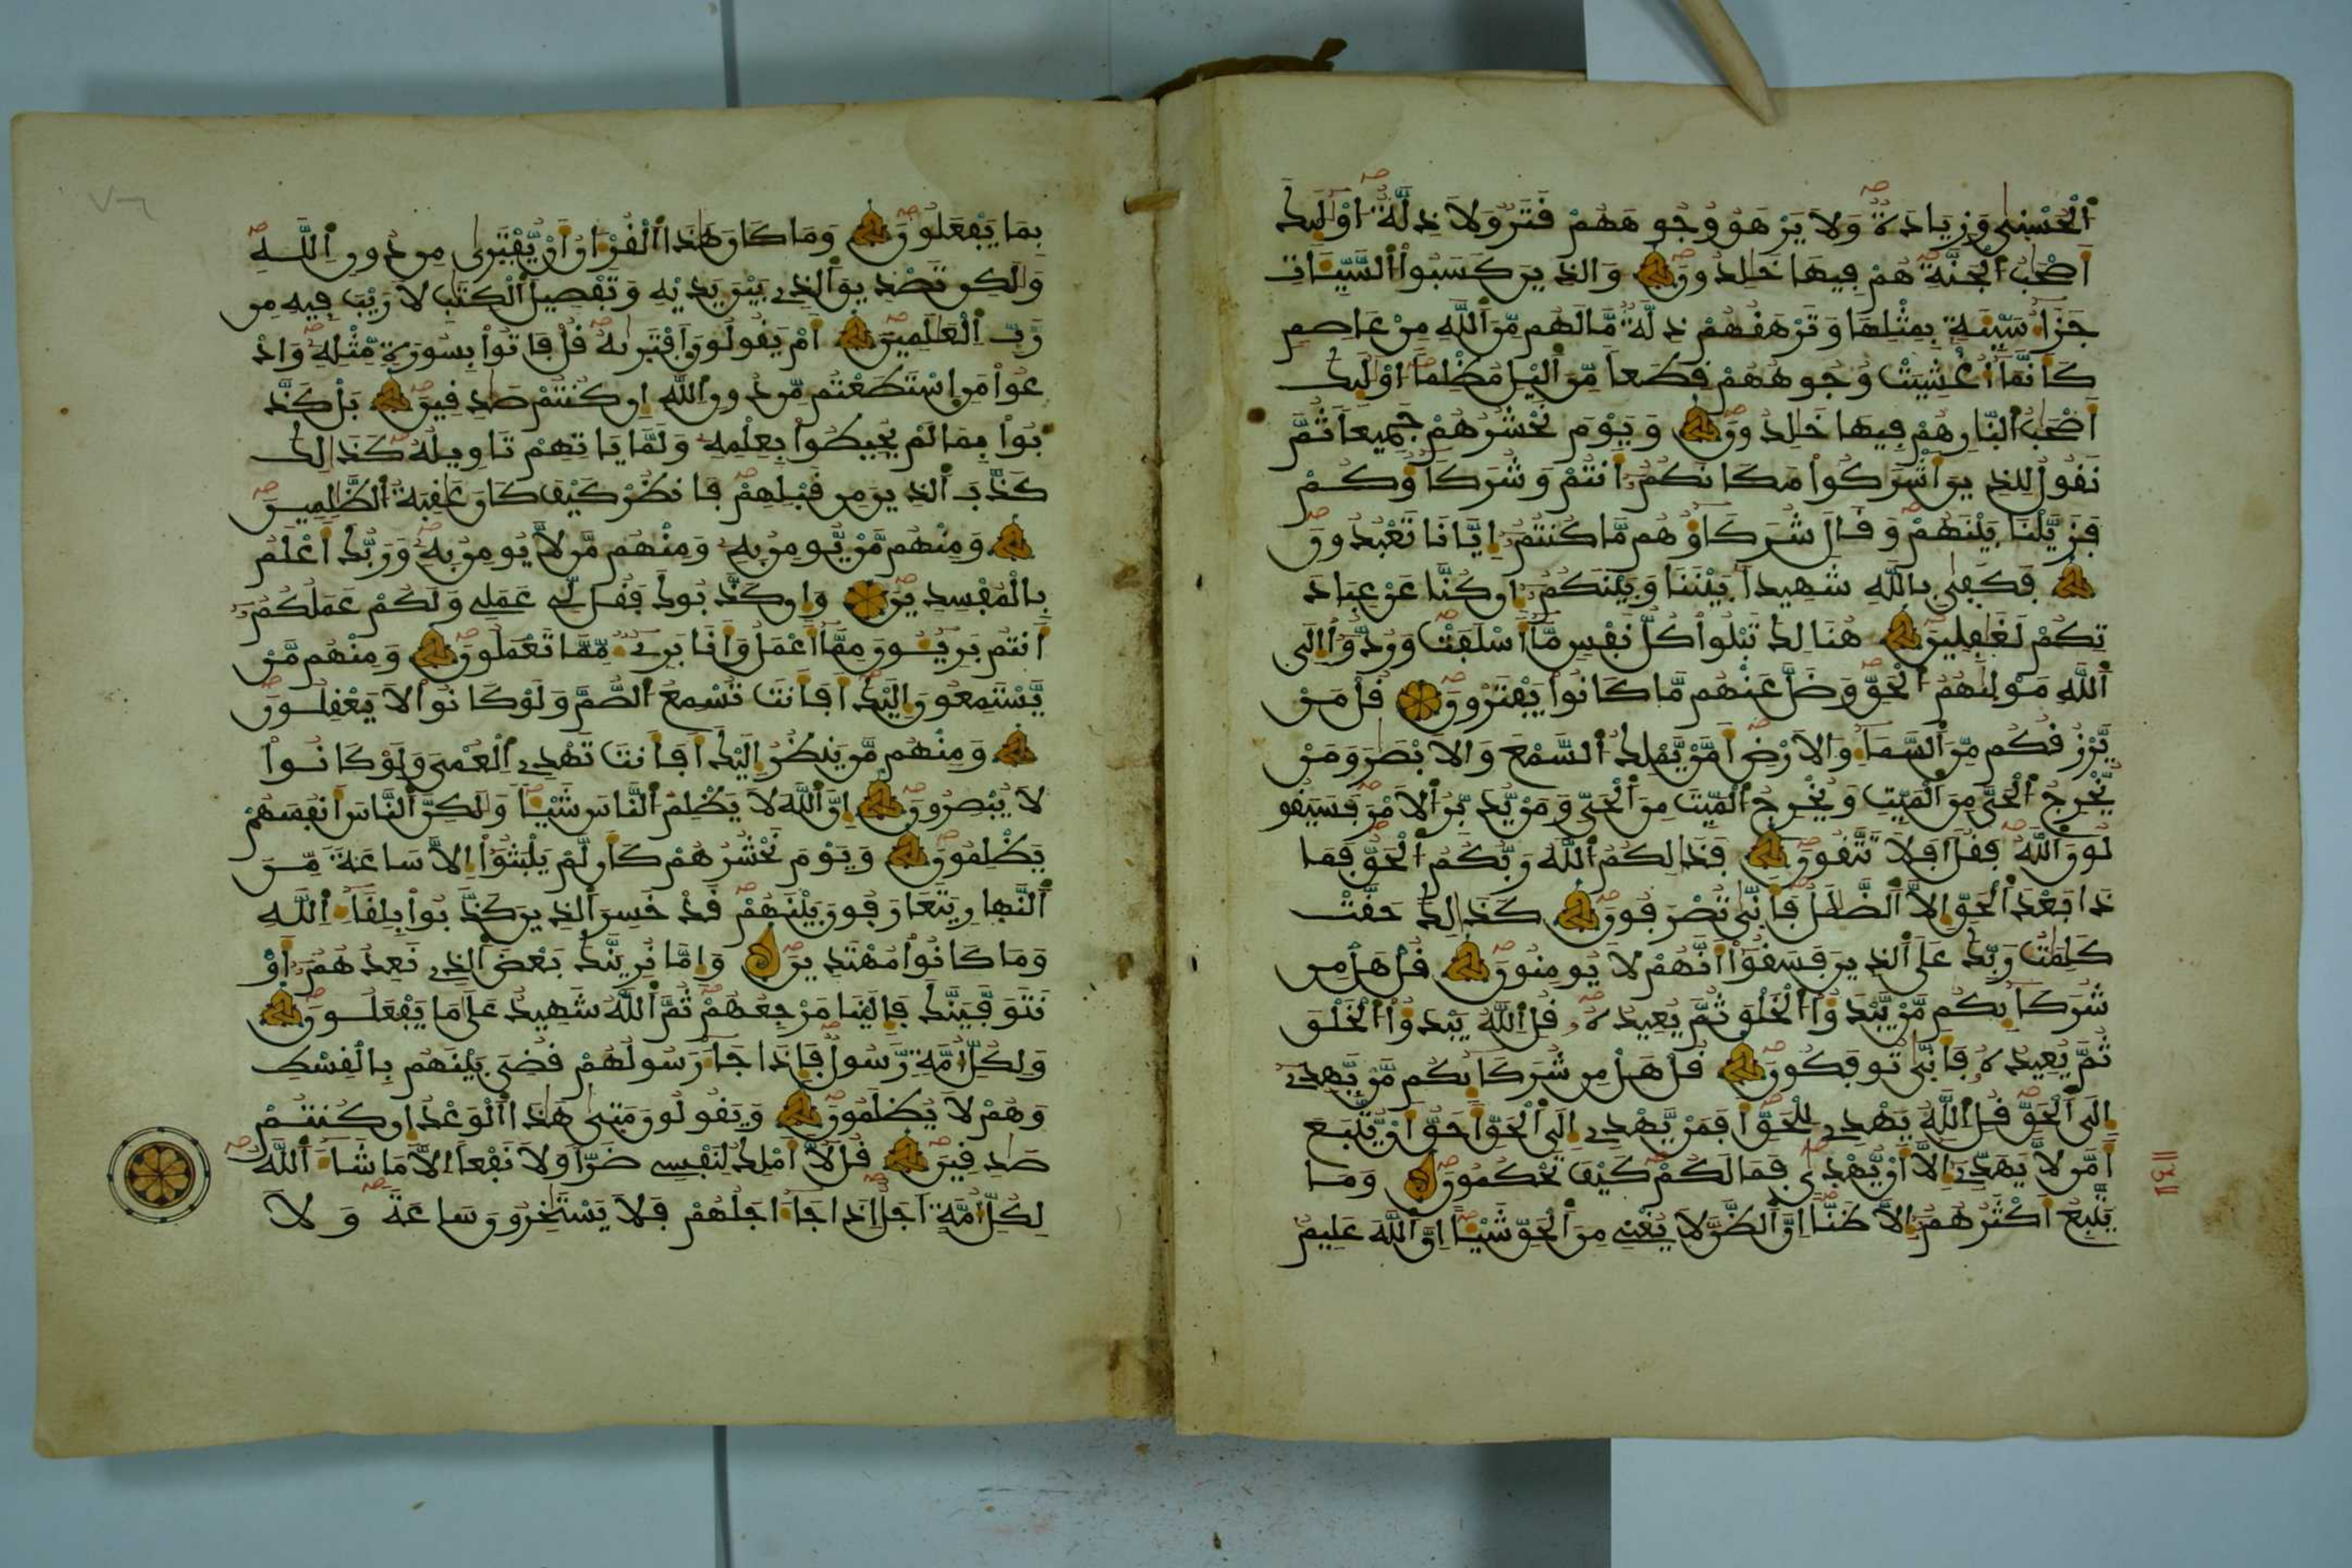 الحسنى وزيادة ولا يرهق وجوههم قتر ولا ذلة اولئك
اصحب الجنة هم فيها خلدون والذين كسبوا السيئات
جزاء سيئة بمثلها وترهقهم ذلة ما لهم من الله من عاصم
كانما اغشيت وجوههم قطعا من اليل مظلما اولئك
اصحب النار هم فيها خلدون ويوم نحشرهم جميعا ثم
نقول للذين اشركوا مكانكم انتم وشركاؤكم
فزيلنا بينهم وقال شركاؤهم ما كنتم ايانا تعبدون
فكفى بالله شهيدا بيننا وبينكم ان كنا عن عباد
تكم لغفلين هنالك تبلوا كل نفس ما اسلفت وردوا الى
الله موليهم الحق وضل عنهم ما كانوا يفترون قل من
يرزقكم من السماء والارض امن يملك السمع والابصر ومن
يخرج الحي من الميت ويخرج الميت من الحي ومن يدبر الامر فسيقو
لون الله فقل افلا تتقون فذلكم الله ربكم الحق فما
ذا بعد الحق الا الضلل فانى تصرفون كذلك حقت
كلمت ربك على الذين فسقوا انهم لا يومنون قل هل من
شركائكم من يبدؤا الخلق ثم يعيده قل الله يبدؤا الخلق
ثم يعيده فانى توفكون قل هل من شركائكم من يهدي
الى الحق قل الله يهدي للحق افمن يهدي الى الحق احق ان يتبع
امن لا يهدي الا ان يهدى فما لكم كيف تحكمون وما
يتبع اكثرهم الا ظنا ان الظن لا يغني من الحق شيئا ان الله عليم
بما يفعلون وما كان هذا القرءان ان يفترى من دون الله
ولكن تصديق الذي بين يديه وتفصيل الكتب لا ريب فيه من
رب العلمين ام يقولون افتريه قل فاتوا بسورة مثله واد
عوا من استطعتم من دون الله ان كنتم صدقين بل كذ
بوا بما لم يحيطوا بعلمه ولما ياتهم تاويله كذلك
كذب الذين من قبلهم فانظر كيف كان عقبة الظلمين
ومنهم من يومن به ومنهم من لا يومن به وربك اعلم
بالمفسدين وان كذبوك فقل لي عملي ولكم عملكم
انتم بريئون مما اعمل وانا بريء مما تعملون ومنهم من
يستمعون اليك افانت تسمع الصم ولو كانوا لا يعقلون
ومنهم من ينظر اليك افانت تهدي العمي ولو كانوا
لا يبصرون ان الله لا يظلم الناس شيئا ولكن الناس انفسهم
يظلمون ويوم نحشرهم كان لم يلبثوا الا ساعة من
النهار يتعارفون بينهم قد خسر الذين كذبوا بلقاء الله
وما كانوا مهتدين واما نرينك بعض الذي نعدهم او
نتوفينك فالينا مرجعهم ثم الله شهيد على ما يفعلون
ولكل امة رسول فاذا جاء رسولهم قضي بينهم بالقسط
وهم لا يظلمون ويقولون متى هذا الوعد ان كنتم
صدقين قل لا املك لنفسي ضرا ولا نفعا الا ما شاء الله
لكل امة اجل اذا جاء اجلهم فلا يستخرون ساعة ولا